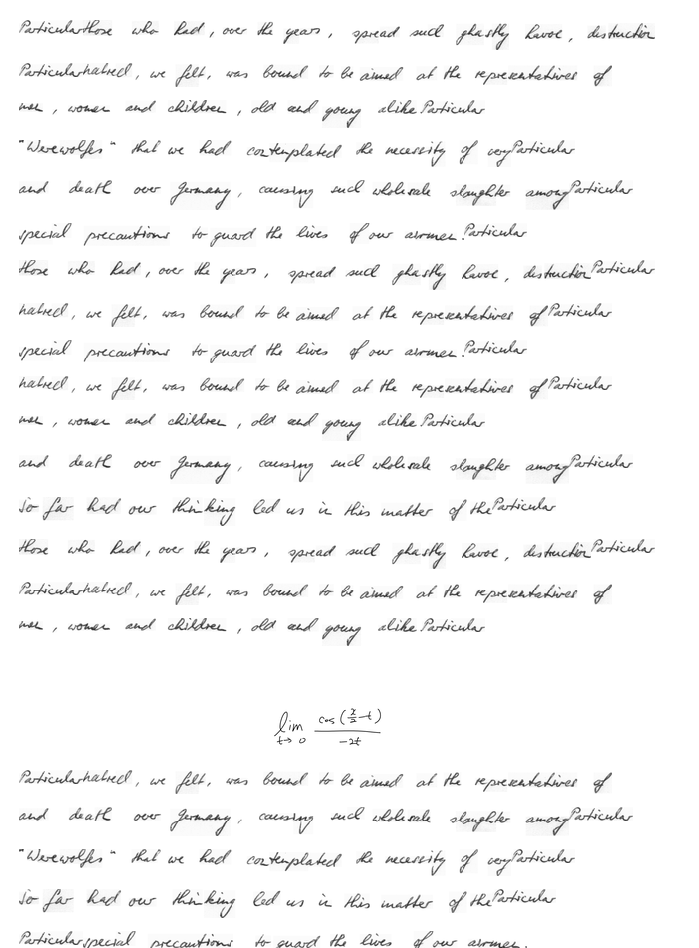 Particularthose who had, over the years, spread such ghastly havoc, destruction
Particularhatred, we felt, was bound to be aimed at the representatives of
men, women and children, old and young alike Particular
"Werewolfes" that we had contemplated the necessity of veryParticular
and death over Germany, causing such wholesale slaughter amongParticular
special precautions to guard the lives of our airmen.Particular
those who had, over the years, spread such ghastly havoc, destructionParticular
hatred, we felt, was bound to be aimed at the representatives ofParticular
special precautions to guard the lives of our airmen.Particular
hatred, we felt, was bound to be aimed at the representatives ofParticular
men, women and children, old and young alike Particular
and death over Germany, causing such wholesale slaughter amongParticular
So far had our thinking led us in this matter of theParticular
those who had, over the years, spread such ghastly havoc, destructionParticular
Particularhatred, we felt, was bound to be aimed at the representatives of
men, women and children, old and young alike Particular
\lim_{t \to 0} \frac{\cos(\frac{x}{2}-t)}{-2t}
Particularhatred, we felt, was bound to be aimed at the representatives of
and death over Germany, causing such wholesale slaughter amongParticular
"Werewolfes" that we had contemplated the necessity of veryParticular
So far had our thinking led us in this matter of theParticular
Particularspecial precautions to guard the lives of our airmen.